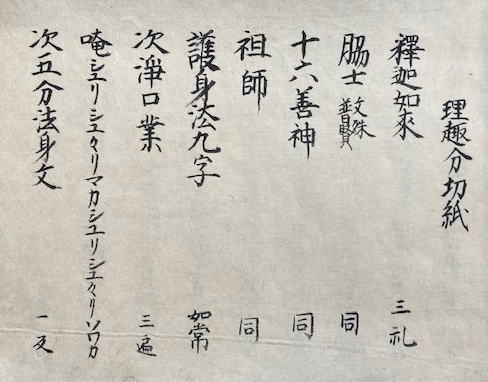 理趣分切紙
釋迦如來 三礼
脇士 文殊 普賢 同
十六善神 同
祖師 同
護身法九字 如常
次淨口業 三遍
唵シユリシユリマカシユリシユシユリソワカ
次五分法身文 一反